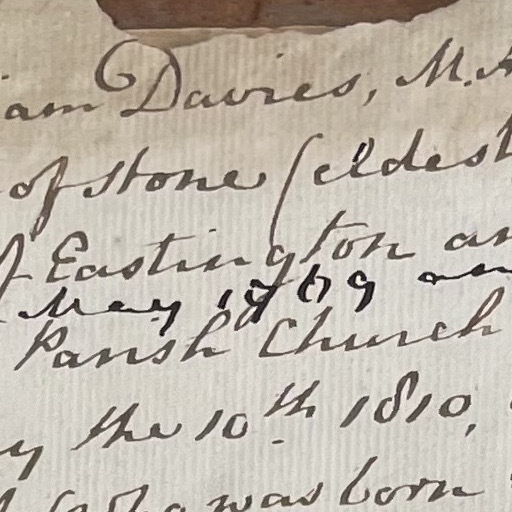 iam Davies, M.A
of Stone (eldest
of Eastington an
May 1769 an
Parish Church
y the 10th 1810,
(who was born